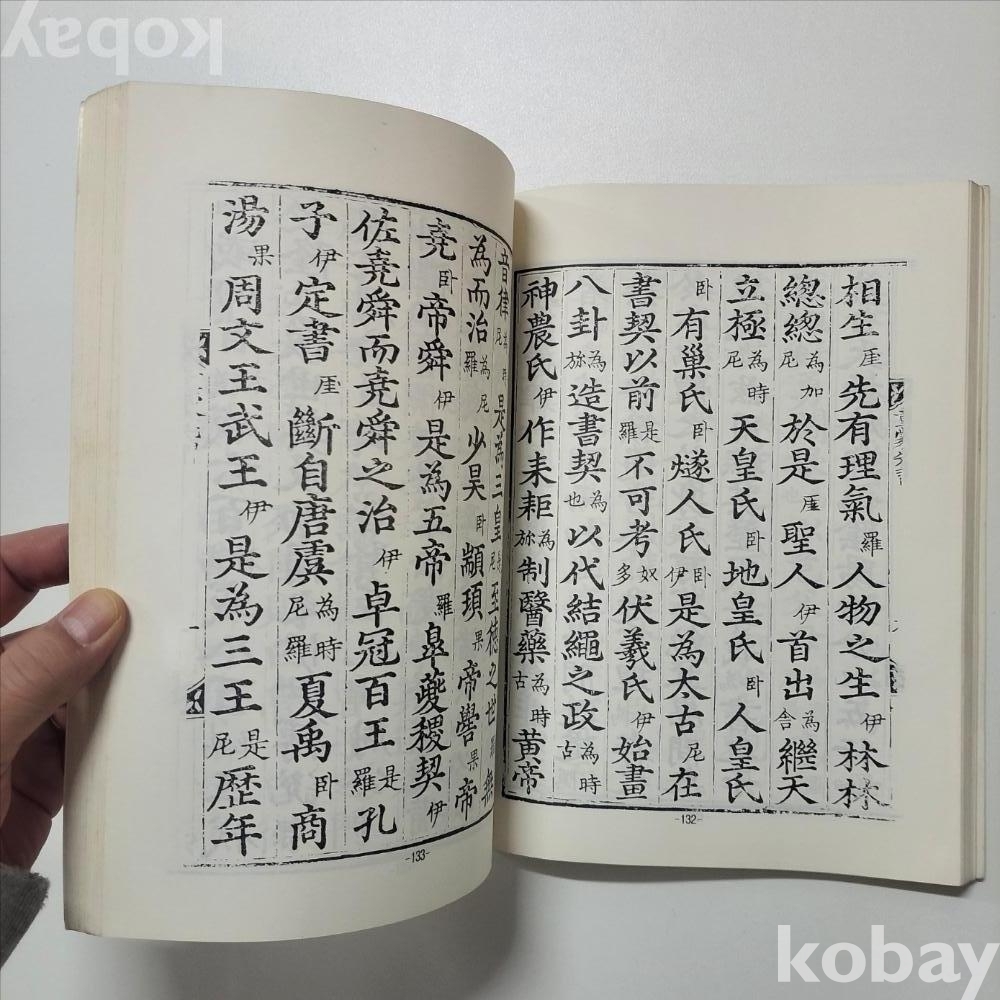 相生厓先有理氣羅人物之生伊林林
總總為加尼於是厓聖人伊首出為舍繼天
立極為時尼天皇氏卧地皇氏卧人皇氏
卧有巢氏卧燧人氏卧伊是為太古尼在
書契以前是羅不可考奴多伏羲氏伊始畫
八卦為旀造書契為也以代結繩之政為時古
神農氏伊作耒耜為旀制醫藥為時古黃帝
-132-
音律是為三皇至德之世羅無
為而治為尼羅少昊卧顓頊果帝嚳果帝
堯卧帝舜伊是為五帝羅皐夔稷契伊
佐堯舜而堯舜之治伊卓冠百王是羅孔
子伊定書厓斷自唐虞為時尼羅夏禹卧商
湯果周文王武王伊是為三王是尼歷年
-133-
kobay
kobay